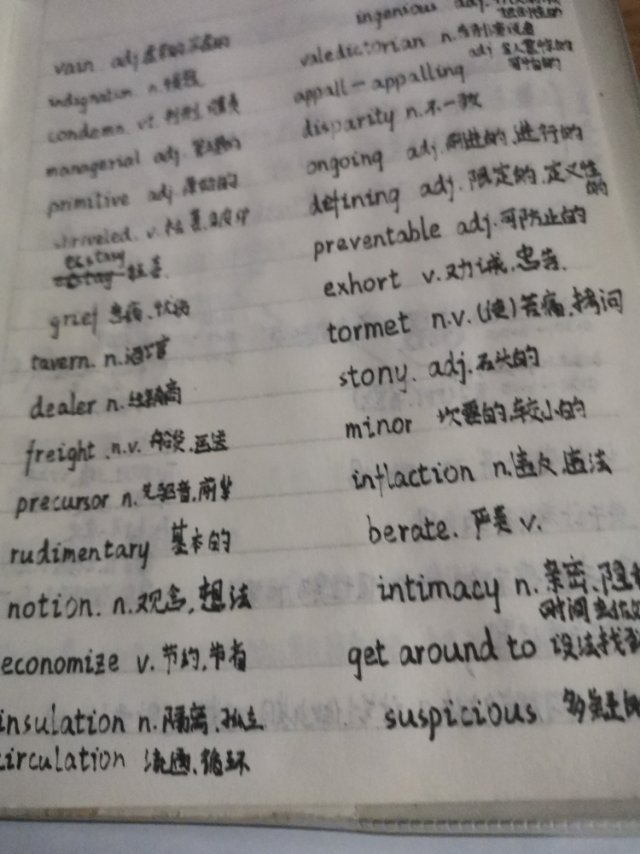 vain. adj
indignation n.
condemn. vt. 判刑、谴责
managerial adj.
primitive adj 原始的
shriveled. v. 枯萎、皱
ecstasy
狂喜.
grief 悲痛、忧伤
tavern. n.酒馆
dealer n.经销商
freight .n.v. 船运、运送
precursor n. 先驱者、前辈
rudimentary 基本的
notion. n.观念,想法
economize v.节约,节省
insulation n.隔离、孤立
circulation 流通、循环
ingenious adj.
valedictorian n.
adj
appall—appalling
可怕的
disparity n.不一致
ongoing adj.前进的、进行的
defining adj. 限定的、定义性
的
preventable adj.可防止的
exhort v.劝诫、忠告.
tormet n.v. (使)苦痛、拷问
stony. adj.石头的
minor 次要的,较小的
inflaction n.违反、违法
berate. 严责 v.
intimacy n.亲密、隐
时间
get around to 设法找
suspicious 多疑的